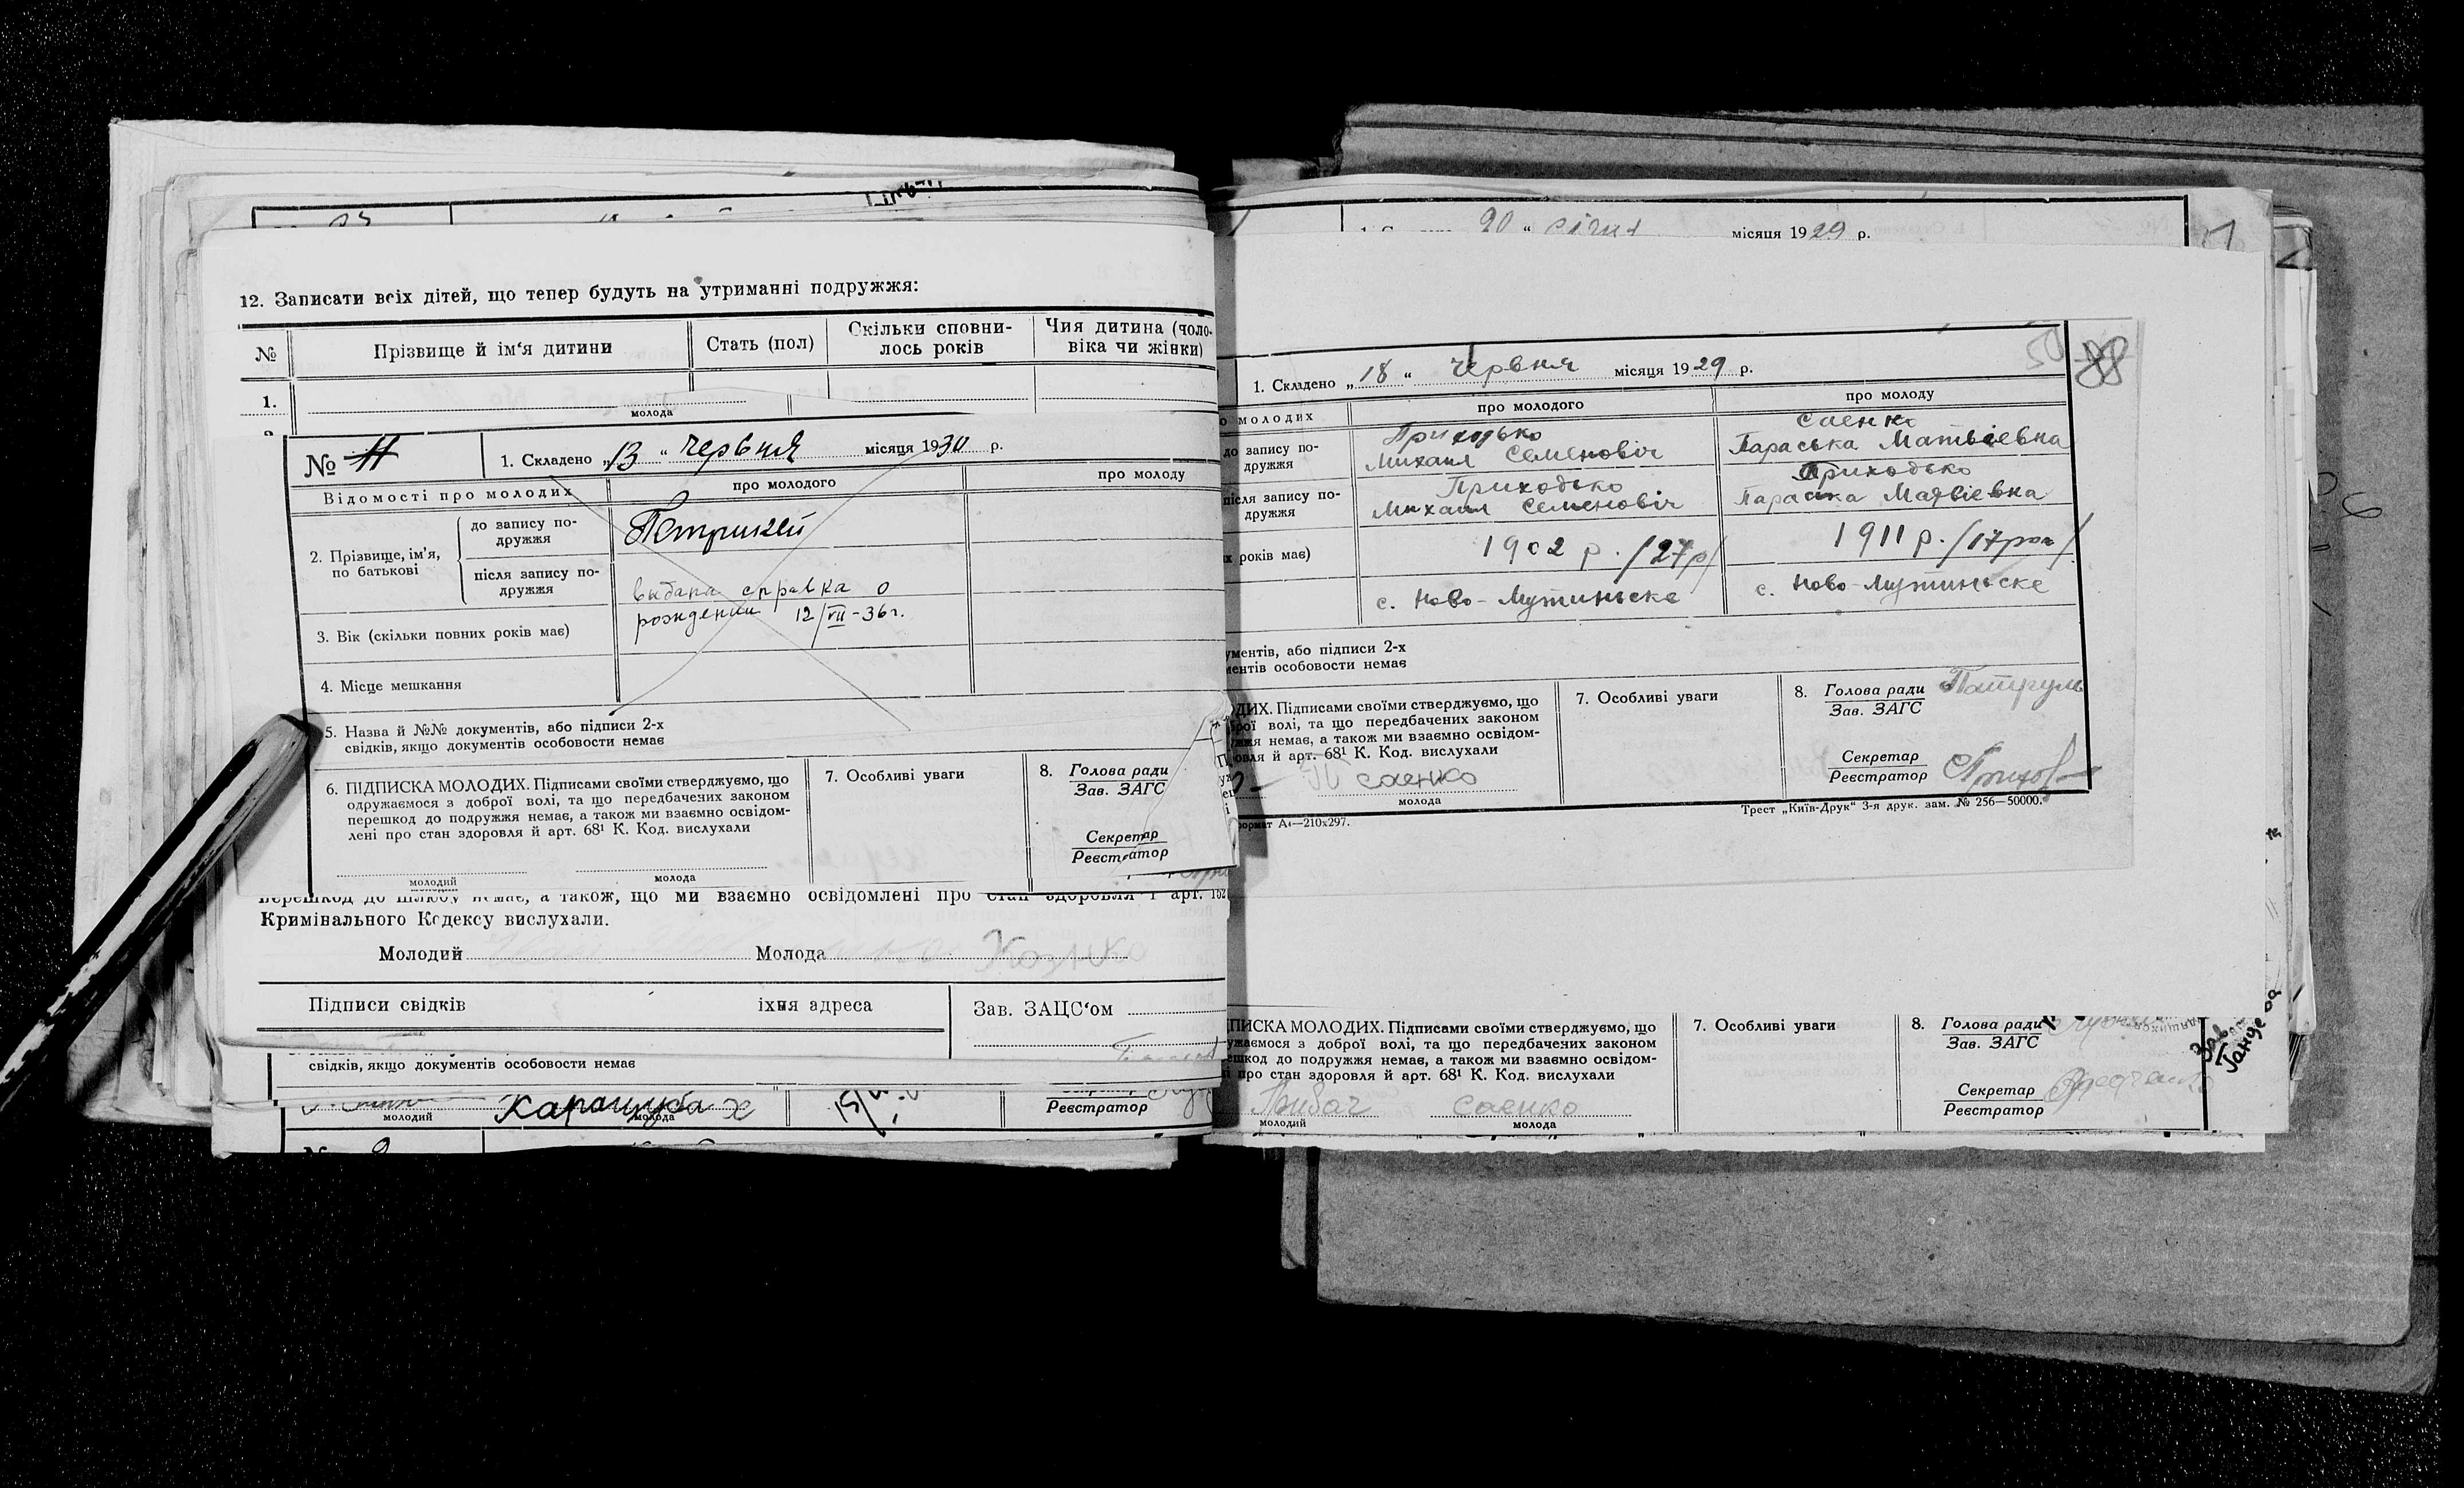 12. Записати всіх дітей, що тепер будуть на утриманні подружжя:
№
Прізвище й ім‘я дитини
Стать (пол)
Скільки сповни-
лось років
Чия дитина (чоло-
віка чи жінки)
1.
молода
№ 11
1. Складено „13“ червня місяця 1930 р.
Відомості про молодих
про молодого
про молоду
2. Прізвище, ім‘я,
по батькові
до запису по-
дружжя
після запису по-
дружжя
выдана справка о
рождении 12/VII-36г.
3. Вік (скільки повних років має)
4. Місце мешкання
5. Назва й №№ документів, або підписи 2-х
свідків, якщо документів особовости немає
6. ПІДПИСКА МОЛОДИХ. Підписами своїми стверджуємо, що
одружаємося з доброї волі, та що передбачених законом
перешкод до подружжя немає, а також ми взаємно освідом-
лені про стан здоровля й арт. 68¹ К. Код. вислухали
молодий
молода
7. Особливі уваги
8. Голова ради
Зав. ЗАГС
Секретар
Реєстратор
перешкод до шлюбу немає, а також, що ми взаємно освідомлені про стан здоровля і арт. 152
Кримінального Кодексу вислухали.
Молодий
Молода
Підписи свідків
їхня адреса
Зав. ЗАЦС‘ом
свідків, якщо документів особовости немає
молодий
Карацуба х
молода
Реєстратор
20 “ січня місяця 1929 р.
1. Складено „18“ червня місяця 1929 р.
50
88
о молодих
про молодого
про молоду
до запису по-
дружжя
Приходько
Михаил Семеновіч
Саенко
Параська Матвіевна
після запису по-
дружжя
Приходько
Михаил Семеновіч
Приходько
Параска Матвіевна
х років має)
1902 р. /27р/
1911 р. /17рок/
с. Ново-Мутиньске
с. Ново-Мутиньске
ументів, або підписи 2-х
ментів особовости немає
ДИХ. Підписами своїми стверджуємо, що
брої волі, та що передбачених законом
жжя немає, а також ми взаємно освідом-
овля й арт. 68¹ К. Код. вислухали
саенко
молода
7. Особливі уваги
8. Голова ради
Зав. ЗАГС
Секретар
Реєстратор
формат А4—210х297.
Трест „Київ-Друк“ 3-я друк. зам. № 256—50000.
ПИСКА МОЛОДИХ. Підписами своїми стверджуємо, що
ужаємося з доброї волі, та що передбачених законом
ешкод до подружжя немає, а також ми взаємно освідом-
і про стан здоровля й арт. 68¹ К. Код. вислухали
саенко
молодий
молода
7. Особливі уваги
8. Голова ради
Зав. ЗАГС
Секретар
Реєстратор